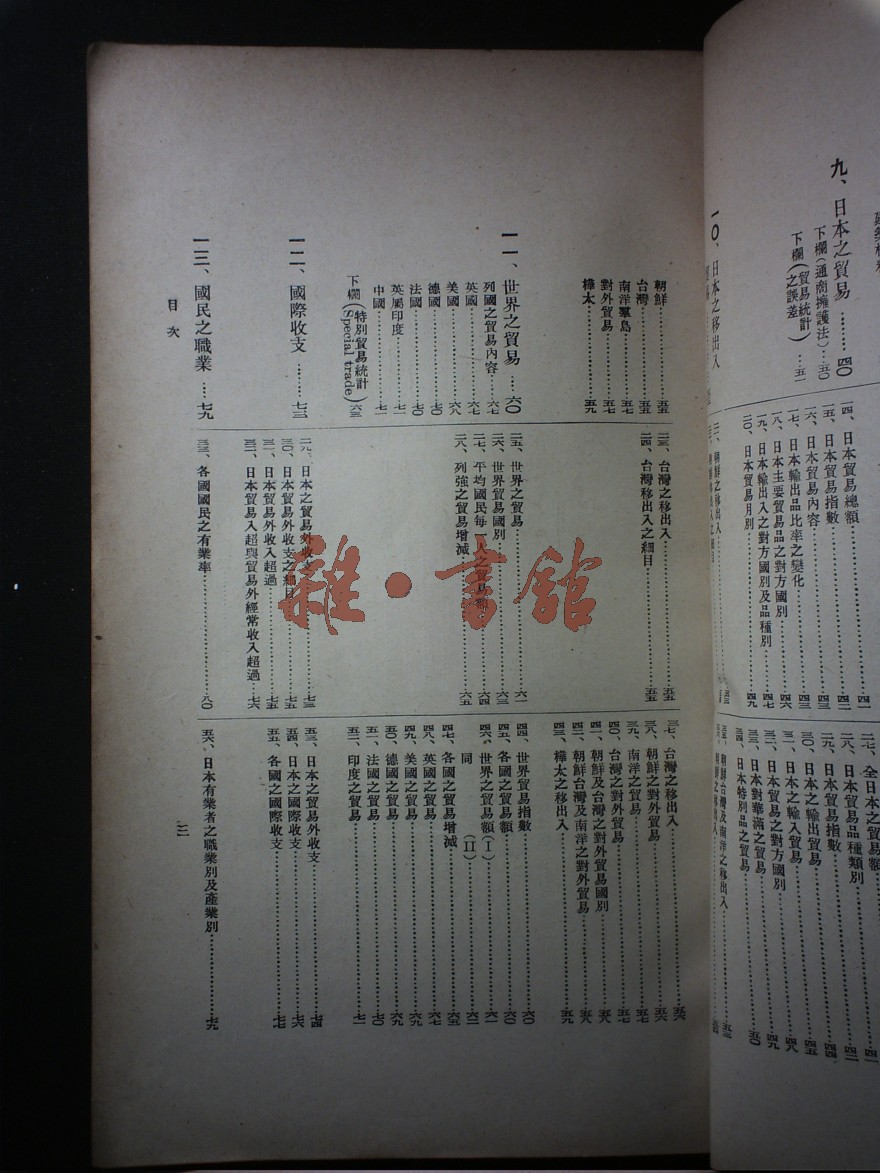 九、日本之貿易………四〇
下欄(通商擁護法)…五〇
下欄(貿易統計之誤差)…五一
一〇、日本之移出入
一四、日本貿易總額………四一
一五、日本貿易指數………四二
一六、日本貿易內容………四三
一七、日本輸出品比率之變化………四五
一八、日本主要貿易品之對方國別………四六
一九、日本輸出入之對方國別及品種別………四七
二〇、日本貿易月別………四九
二七、全日本之貿易額………四一
二八、日本貿易品種類別………四二
二九、日本貿易指數………四四
三〇、日本之輸出貿易………四五
三一、日本之輸入貿易………四八
三二、日本貿易之對方國別………四九
三三、日本對華滿之貿易………五〇
三四、日本特別品之貿易
三五、朝鮮台灣及南洋之移出入
朝鮮………五五
台灣………五五
南洋羣島………五七
對外貿易………五七
樺太………五九
一一、世界之貿易…六〇
列國之貿易內容………六七
英國………六七
美國………六八
德國………七〇
法國………七〇
英屬印度………七一
中國………七一
下欄(特別貿易統計 Special trade)六三
一二、國際收支………七三
一三、國民之職業…七九
二三、台灣之移出入………五五
二四、台灣移出入之細目………五五
二五、世界之貿易………六一
二六、世界貿易國別………六三
二七、平均國民每一人之貿易額………六四
二八、列強之貿易增減………六五
二九、日本之貿易外收支………七三
三〇、日本貿易外收支之細目………七五
三一、日本貿易外收入超過………七五
三二、日本貿易入超與貿易外經常收入超過…七六
三三、各國國民之有業率………八〇
三七、台灣之移出入………五六
三八、朝鮮之對外貿易………五六
三九、南洋之貿易………五七
四〇、台灣之對外貿易………五七
四一、朝鮮及台灣之對外貿易國別………五八
四二、朝鮮台灣及南洋之對外貿易………五八
四三、樺太之移出入………五九
四四、世界貿易指數………六〇
四五、各國之貿易額………六〇
四六、世界之貿易額(I)………六一
同(II)………六二
四七、各國之貿易增減………六五
四八、英國之貿易………六七
四九、美國之貿易………六九
五〇、德國之貿易………六九
五一、法國之貿易………七〇
五二、印度之貿易………七一
五三、日本之貿易外收支………七四
五四、日本之國際收支………七六
五五、各國之國際收支………七七
五六、日本有業者之職業別及產業別………七九
目次
三
雜·書館